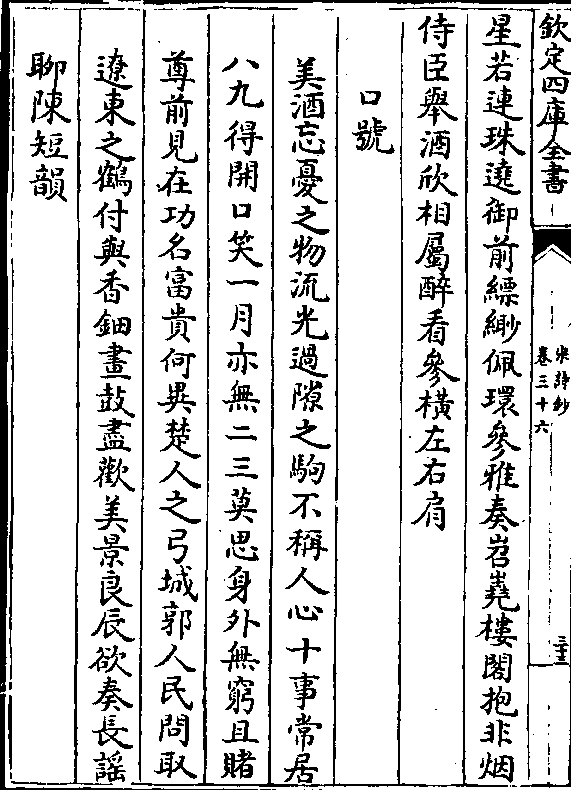 欽定四庫全書
宋詩鈔
卷三十六
星若連珠遶御前縹緲佩環參雅奏岧嶤樓閣抱非烟
侍臣舉酒欣相屬醉看參橫左右肩
口號
美酒忘憂之物流光過隙之駒不稱人心十事常居
八九得開口笑一月亦無二三莫思身外無窮且賭
尊前見在功名富貴何異楚人之弓城郭人民問取
遼東之鶴付與香鈿畫鼓盡歡美景良辰欲奏長謠
聊陳短韻